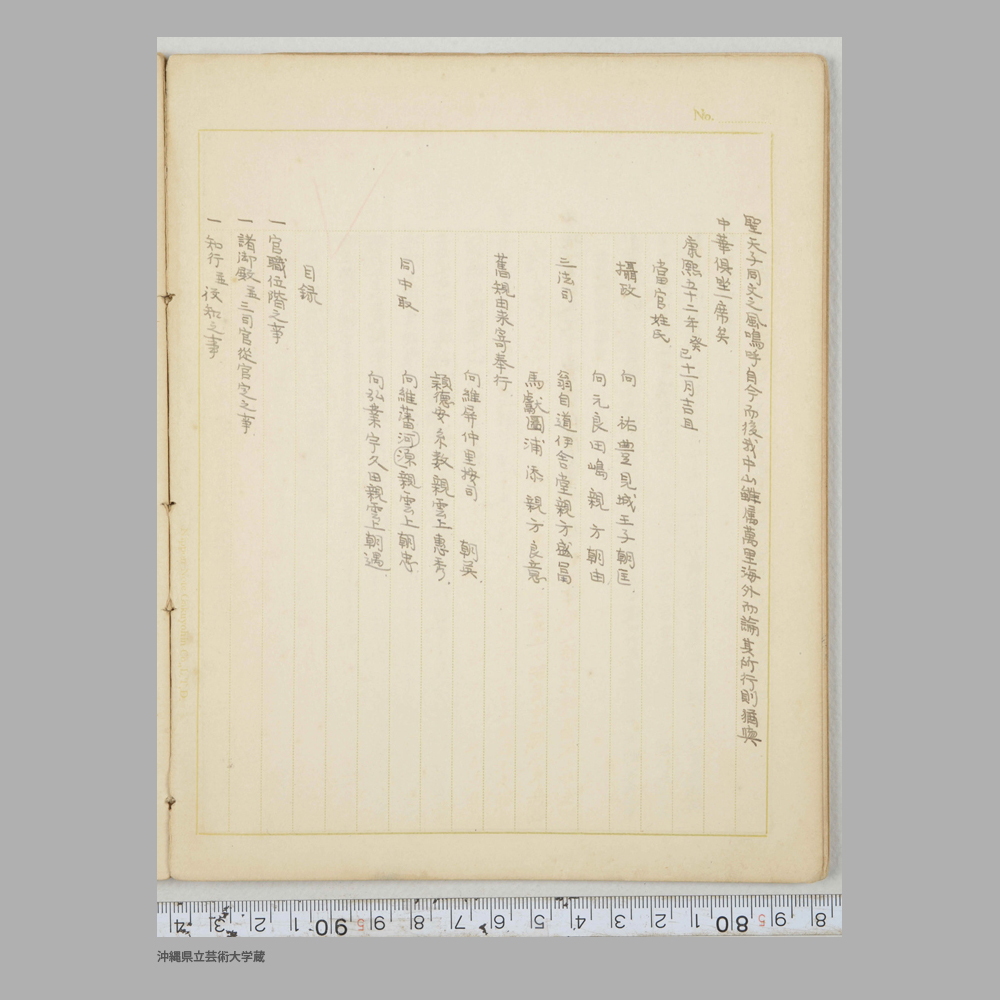 No.
聖天子同文之風嗚呼自今而後我中山雖属萬里海外而論其所行則猶與
中華倶坐一席矣
康熙五十二年癸巳十一月吉旦
當官姓氏
攝政 向 祐豊見城王子朝匡
向元良田嶋親方朝由
三法司 翁自道伊舎堂親方盛冨
馬獻圖浦添親方良意
舊規由来寄奉行
向維屏仲里按司 朝英
頴徳安糸数親雲上惠秀
同中取 向維藩河源親雲上朝忠
向弘業宇久田親雲上朝遇
目録
一官職位階之事
一諸御殿並三司官従官定之事
一知行並役知之事
4 3 2 1 90 9 8 7 6 5 4 3 2 1 80 9 8
沖縄県立芸術大学蔵